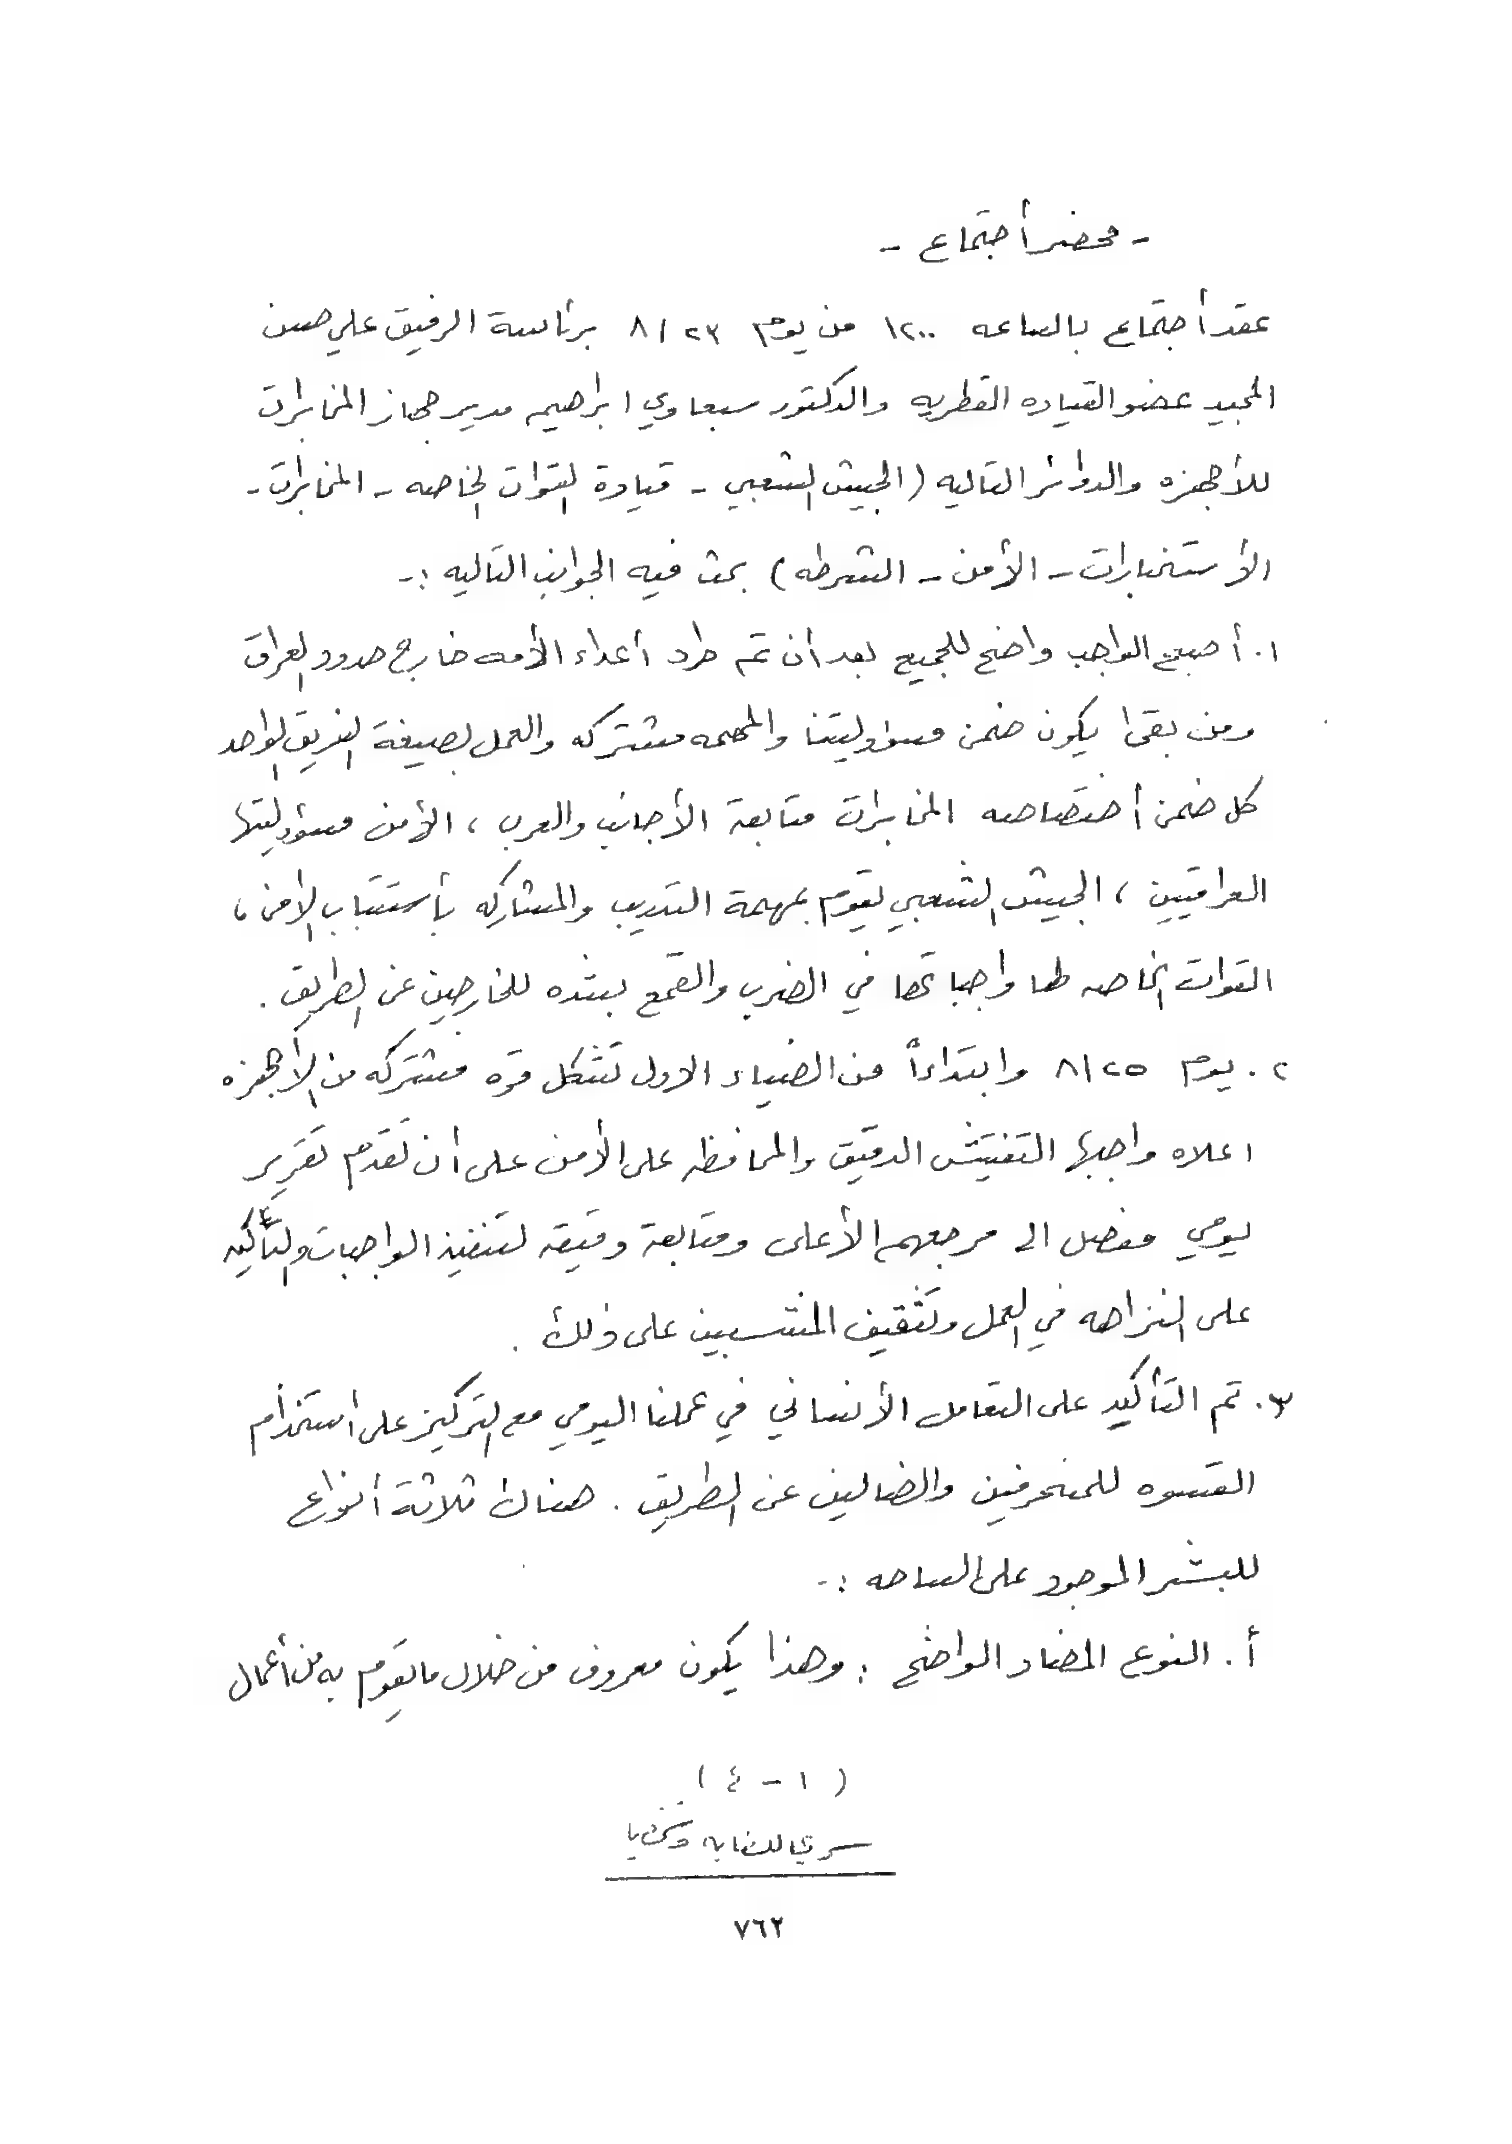 - محضر أجتماع -
عقد أجتماع بالساعه ١٢٠٠ من يوم ٨/٢٣ برئاسة الرفيق علي حسن
المجيد عضو القياده القطريه والدكتور سبعاوي ابراهيم مدير جهاز المخابرات
للأجهزه والدوائر التاليه (الجيش الشعبي - قيادة القوات الخاصه - المخابرات -
الأستخبارات - الأمن - الشرطه) بحث فيه الجوانب التاليه :-
١. أصبح الواجب واضح للجميع بعد أن تم طرد أعداء الأمه خارج حدود العراق
ومن بقى يكون ضمن مسؤوليتنا والمهمه مشتركه والعمل بصيغة الفريق الواحد
كل ضمن أختصاصه المخابرات متابعة الأجانب والعرب ، الأمن مسؤوليتها
العراقيين ، الجيش الشعبي يقوم بمهمة التدريب والمشاركه بأستتباب الأمن ،
القوات الخاصه لها واجباتها في الضرب والقمع بشده للخارجين عن الطريق .
٢. يوم ٨/٢٥ وابتداءاً من الضياء الاول تشكل قوه مشتركه من الأجهزه
اعلاه واجبها التفتيش الدقيق والمحافظه على الأمن على أن تقدم تقرير
يومي مفصل الى مرجعهم الأعلى ومتابعة دقيقه لتنفيذ الواجبات والتأكيد
على النزاهه في العمل وتثقيف المنتسبين على ذلك .
٣. تم التأكيد على التعامل الأنساني في عملنا اليومي مع التركيز على استخدام
القسوه للمنحرفين والضالين عن الطريق . هناك ثلاثة أنواع
للبشر الموجود على الساحه :-
أ. النوع المضاد الواضح : وهذا يكون معروف من خلال مايقوم به من أعمال
(١ - ٤)
سري للغايه وشخصيا
٧٦٢